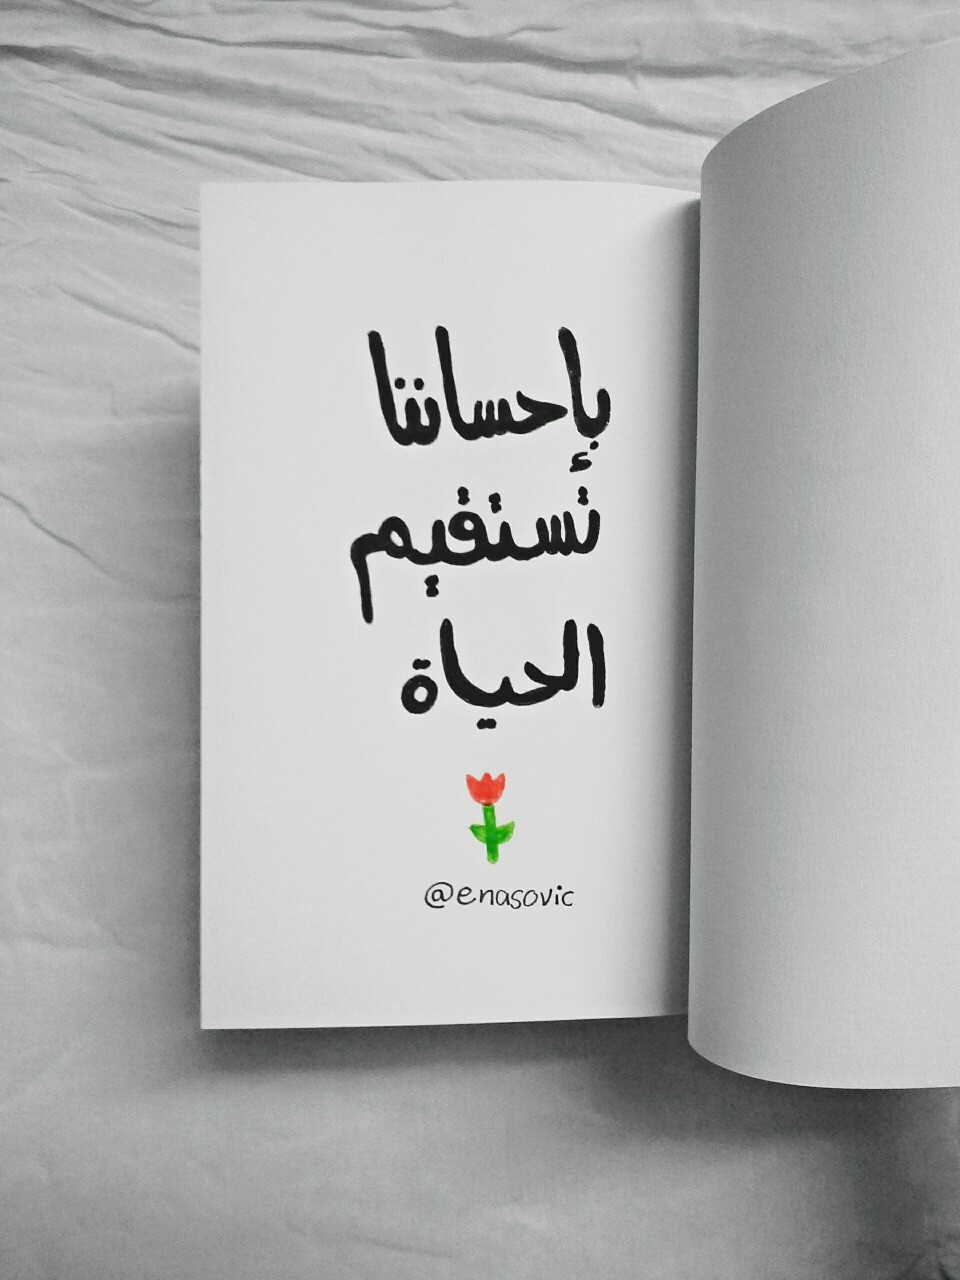 بإحساننا
تستقيم
الحياة
@enasovic